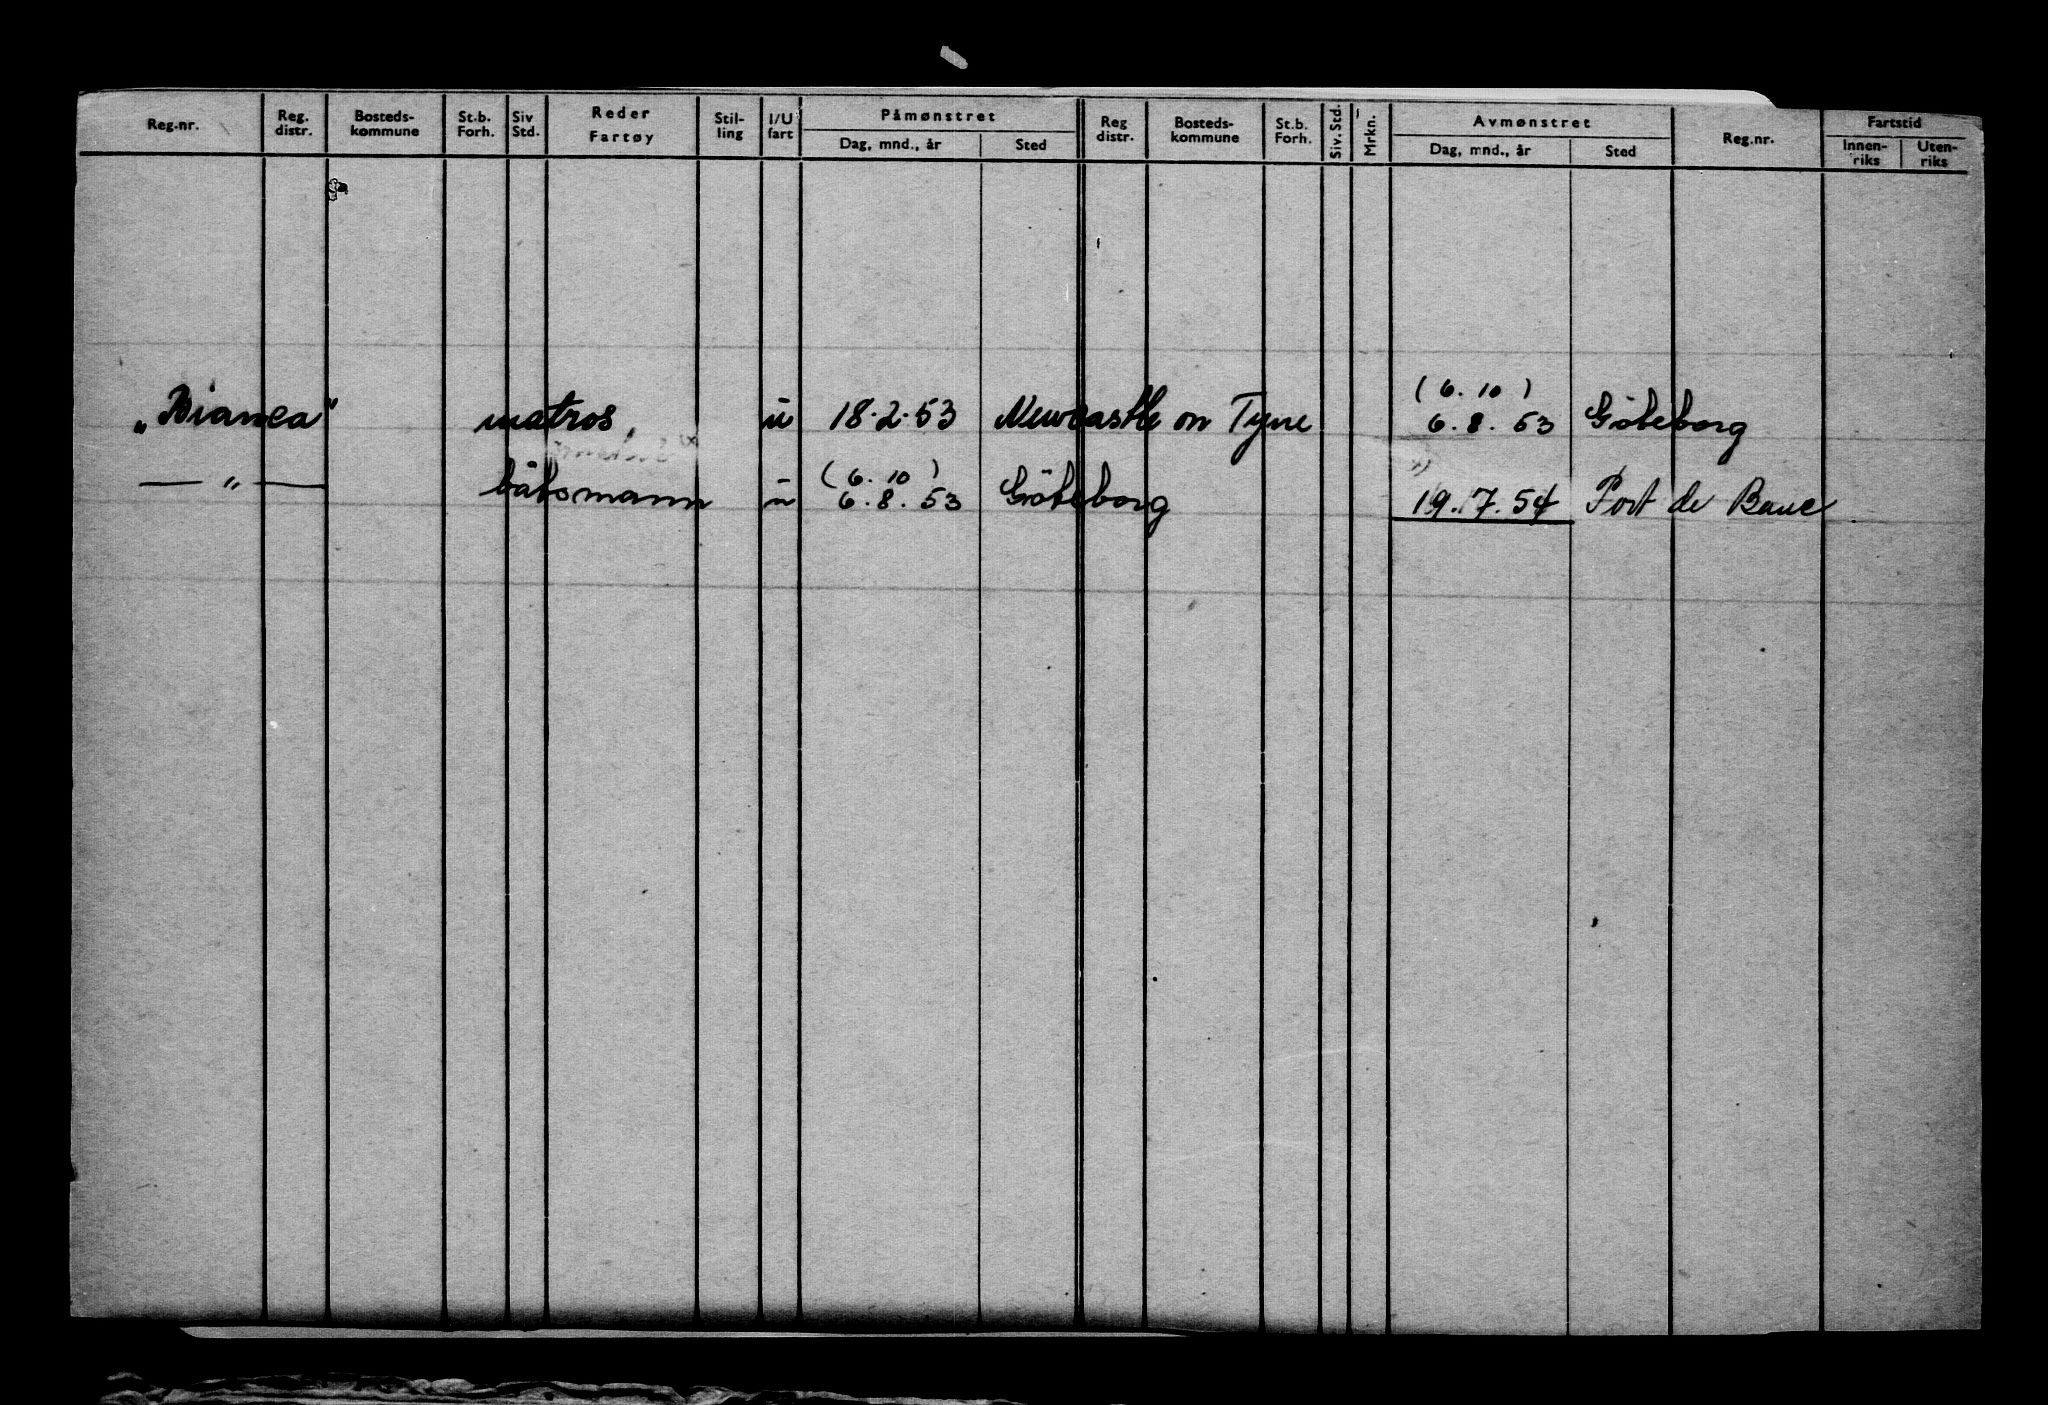 Reg.nr. Reg. distr. Bosteds-kommune St.b. Forh. Siv Std. Reder Fartøy Stil-ling I/U fart Påmønstret Dag, mnd., år Sted Reg distr. Bosteds-kommune St.b. Forh. Siv. Std. Mrkn. Avmønstret Dag, mnd., år Sted Reg.nr. Fartstid Innen-riks Uten-riks
(6.10)
„Bianca" matros ü 18.2.53 Newcastle on Tyne 6.8.53 Göteborg
(6.10) x)
— " — båtsmann ü 6.8.53 Göteborg 19.7.54 Port de Bouc